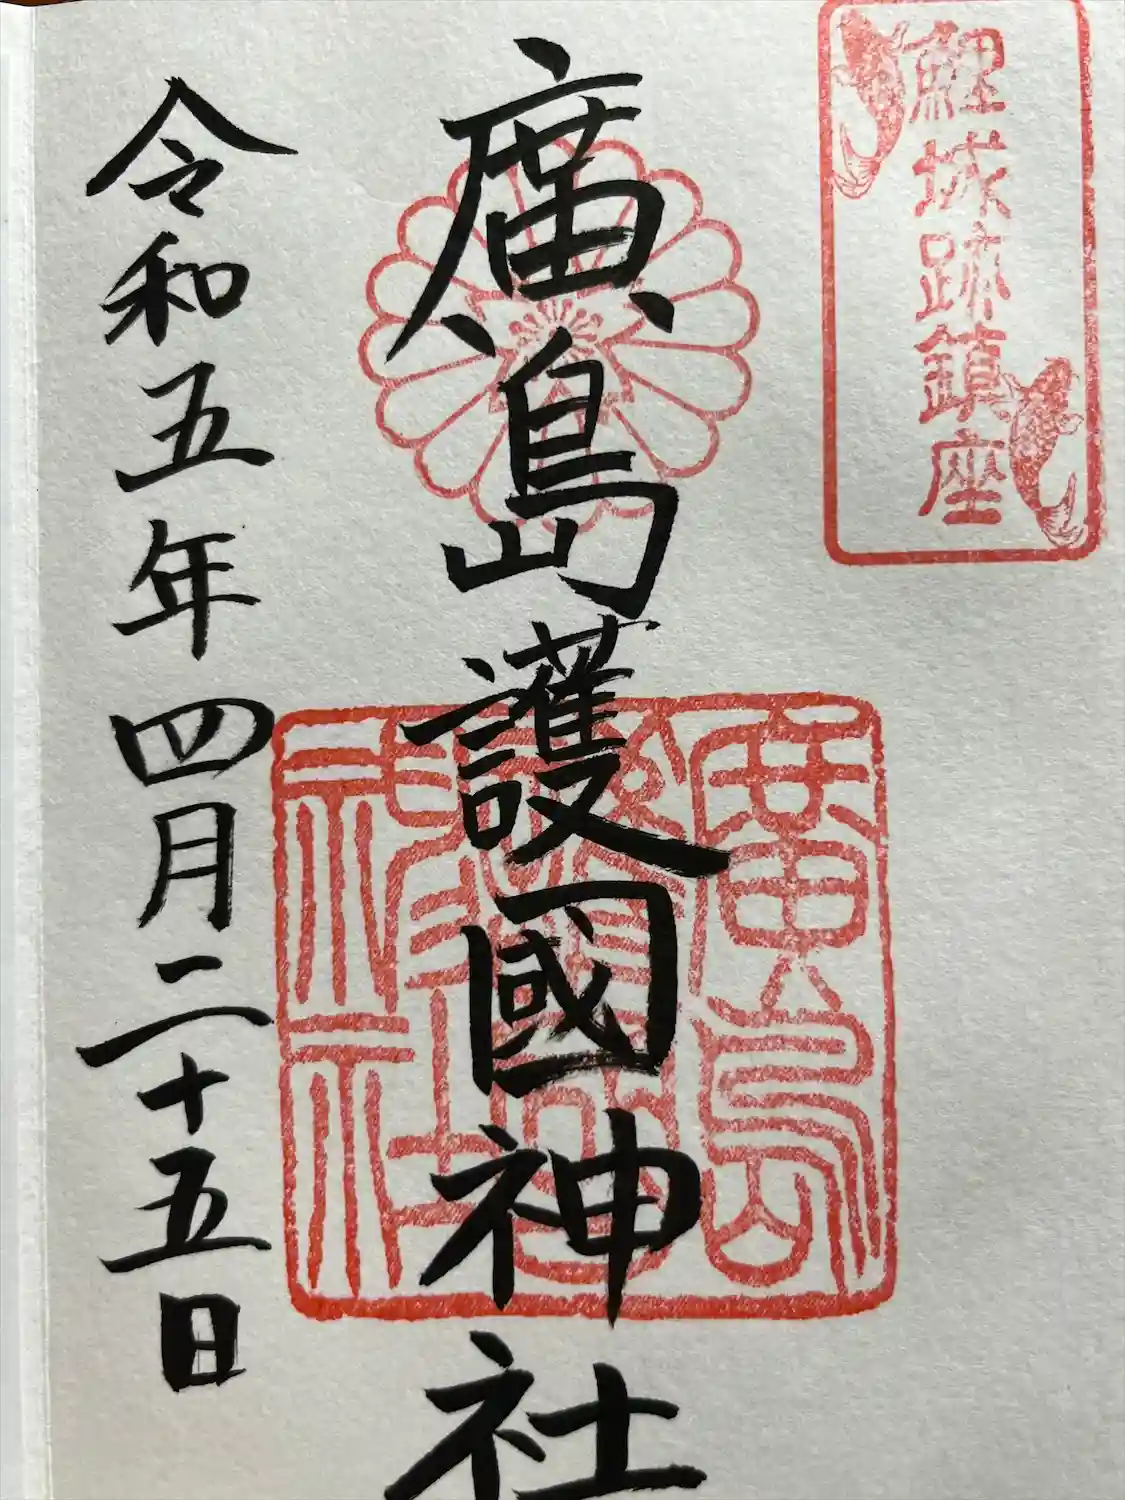 鯉城跡鎮座
廣島護國神社
令和五年四月二十五日